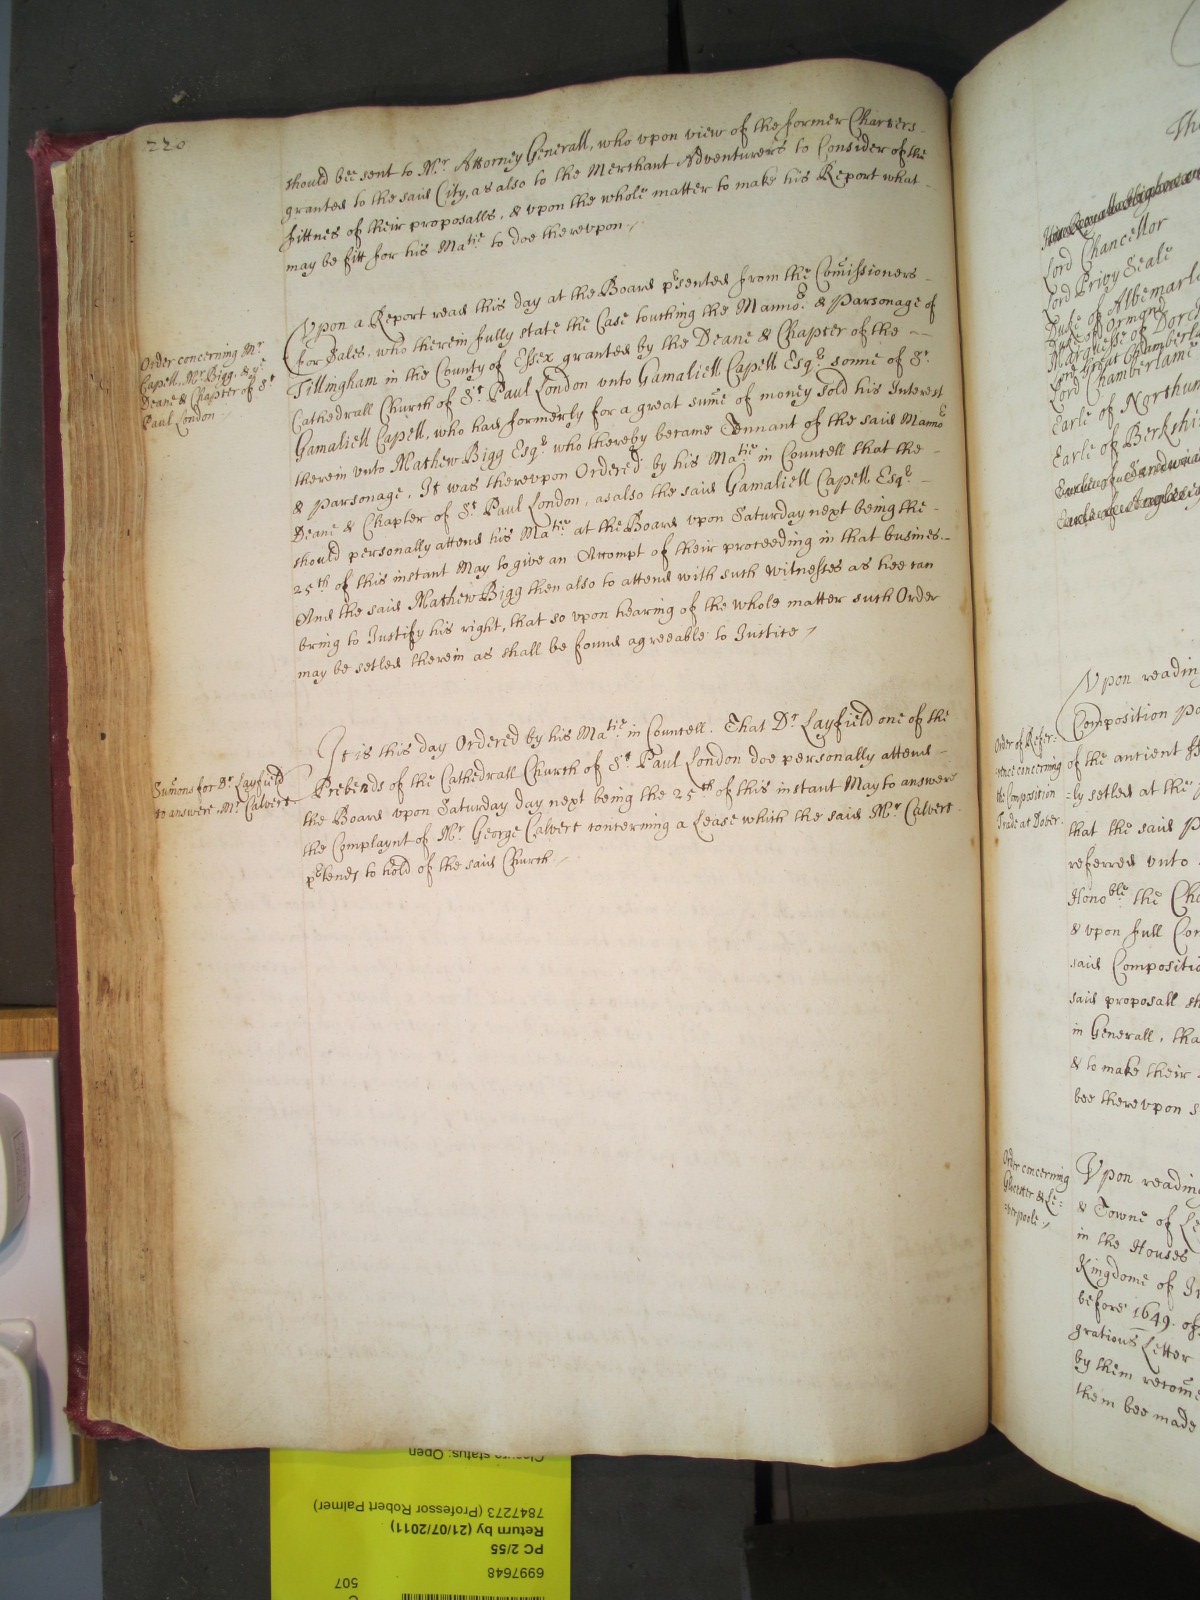 220
should bee sent to Mr. Attorney Generall, who vpon view of the former Charters
granted to the said City, as also to the Merchant Adventurers to Consider of the
fittnes of their proposalls, & vpon the whole matter to make his Report what
may be fitt for his Matie to doe therevpon
Order concerning Mr
Capell, Mr. Bigg, & ye
Deane & Chapter of St
Paul London
Vpon a Report read this day at the Board presented from the Comissioners
for Sales, who therein fully state the Case touching the Manno.r & Parsonage of
Tillingham in the County of Essex granted by the Deane & Chapter of the
Cathedrall Church of St. Paul London vnto Gamaliell Capell Esqr. sonne of Sr.
Gamaliell Capell, who had formerly for a great sume of money sold his Interest
therein vnto Mathew Bigg Esqr. who thereby became Tennant of the said Mannor
& Parsonage. It was therevpon Ordered by his Matie in Councell that the
Deane & Chapter of St. Paul London, as also the said Gamaliell Capell Esqr.
should personally attend his Matie at the Board vpon Saturday next being the
25th of this instant May to give an Accompt of their proceeding in that busines.
And the said Mathew Bigg then also to attend with such witnesses as hee can
bring to Justify his right, that so vpon hearing of the whole matter such Order
may be setled therein as shall be found agreeable to Justice
Sumons for Dr Layfield
to answere Mr. Calvert
It is this day Ordered by his Matie in Councell. That Dr. Layfield one of the
Prebends of the Cathedrall Church of St. Paul London doe personally attend
the Board vpon Saturday day next being the 25th of this instant May to answere
the Complaynt of Mr. George Calvert concerning a Lease which the said Mr. Calvert
prtends to hold of the said Church
The
Lord Chancellor
Lord Privy Seale
Duke of Albemarle
Duke of Ormond
Marquesse of Dorch
Lord Great Chamberl
Lord Chamberlaine
Earle of Northum
Earle of Berkshi
Earle of Sandwi
Earle of Anglesey
Order of Refer-
rence concerning
the Composition
Trade at Dover.
Vpon reading
Composition
of the antient
-ly setled at the
that the said
referred vnto
Honoble the Cha
& vpon full Con
said Compositi
said proposall sh
in Generall, tha
& to make their
bee therevpon s
Order concerning
Glocester & Le-
-verpoole
Vpon reading
& Towne of Le
in the Houses
Kingdome of Ir
before 1649. of
gratious Letter
by them
them bee made
Closure status: Open
7847273 (Professor Robert Palmer)
Return by (21/07/2011)
PC 2/55
6997648
507